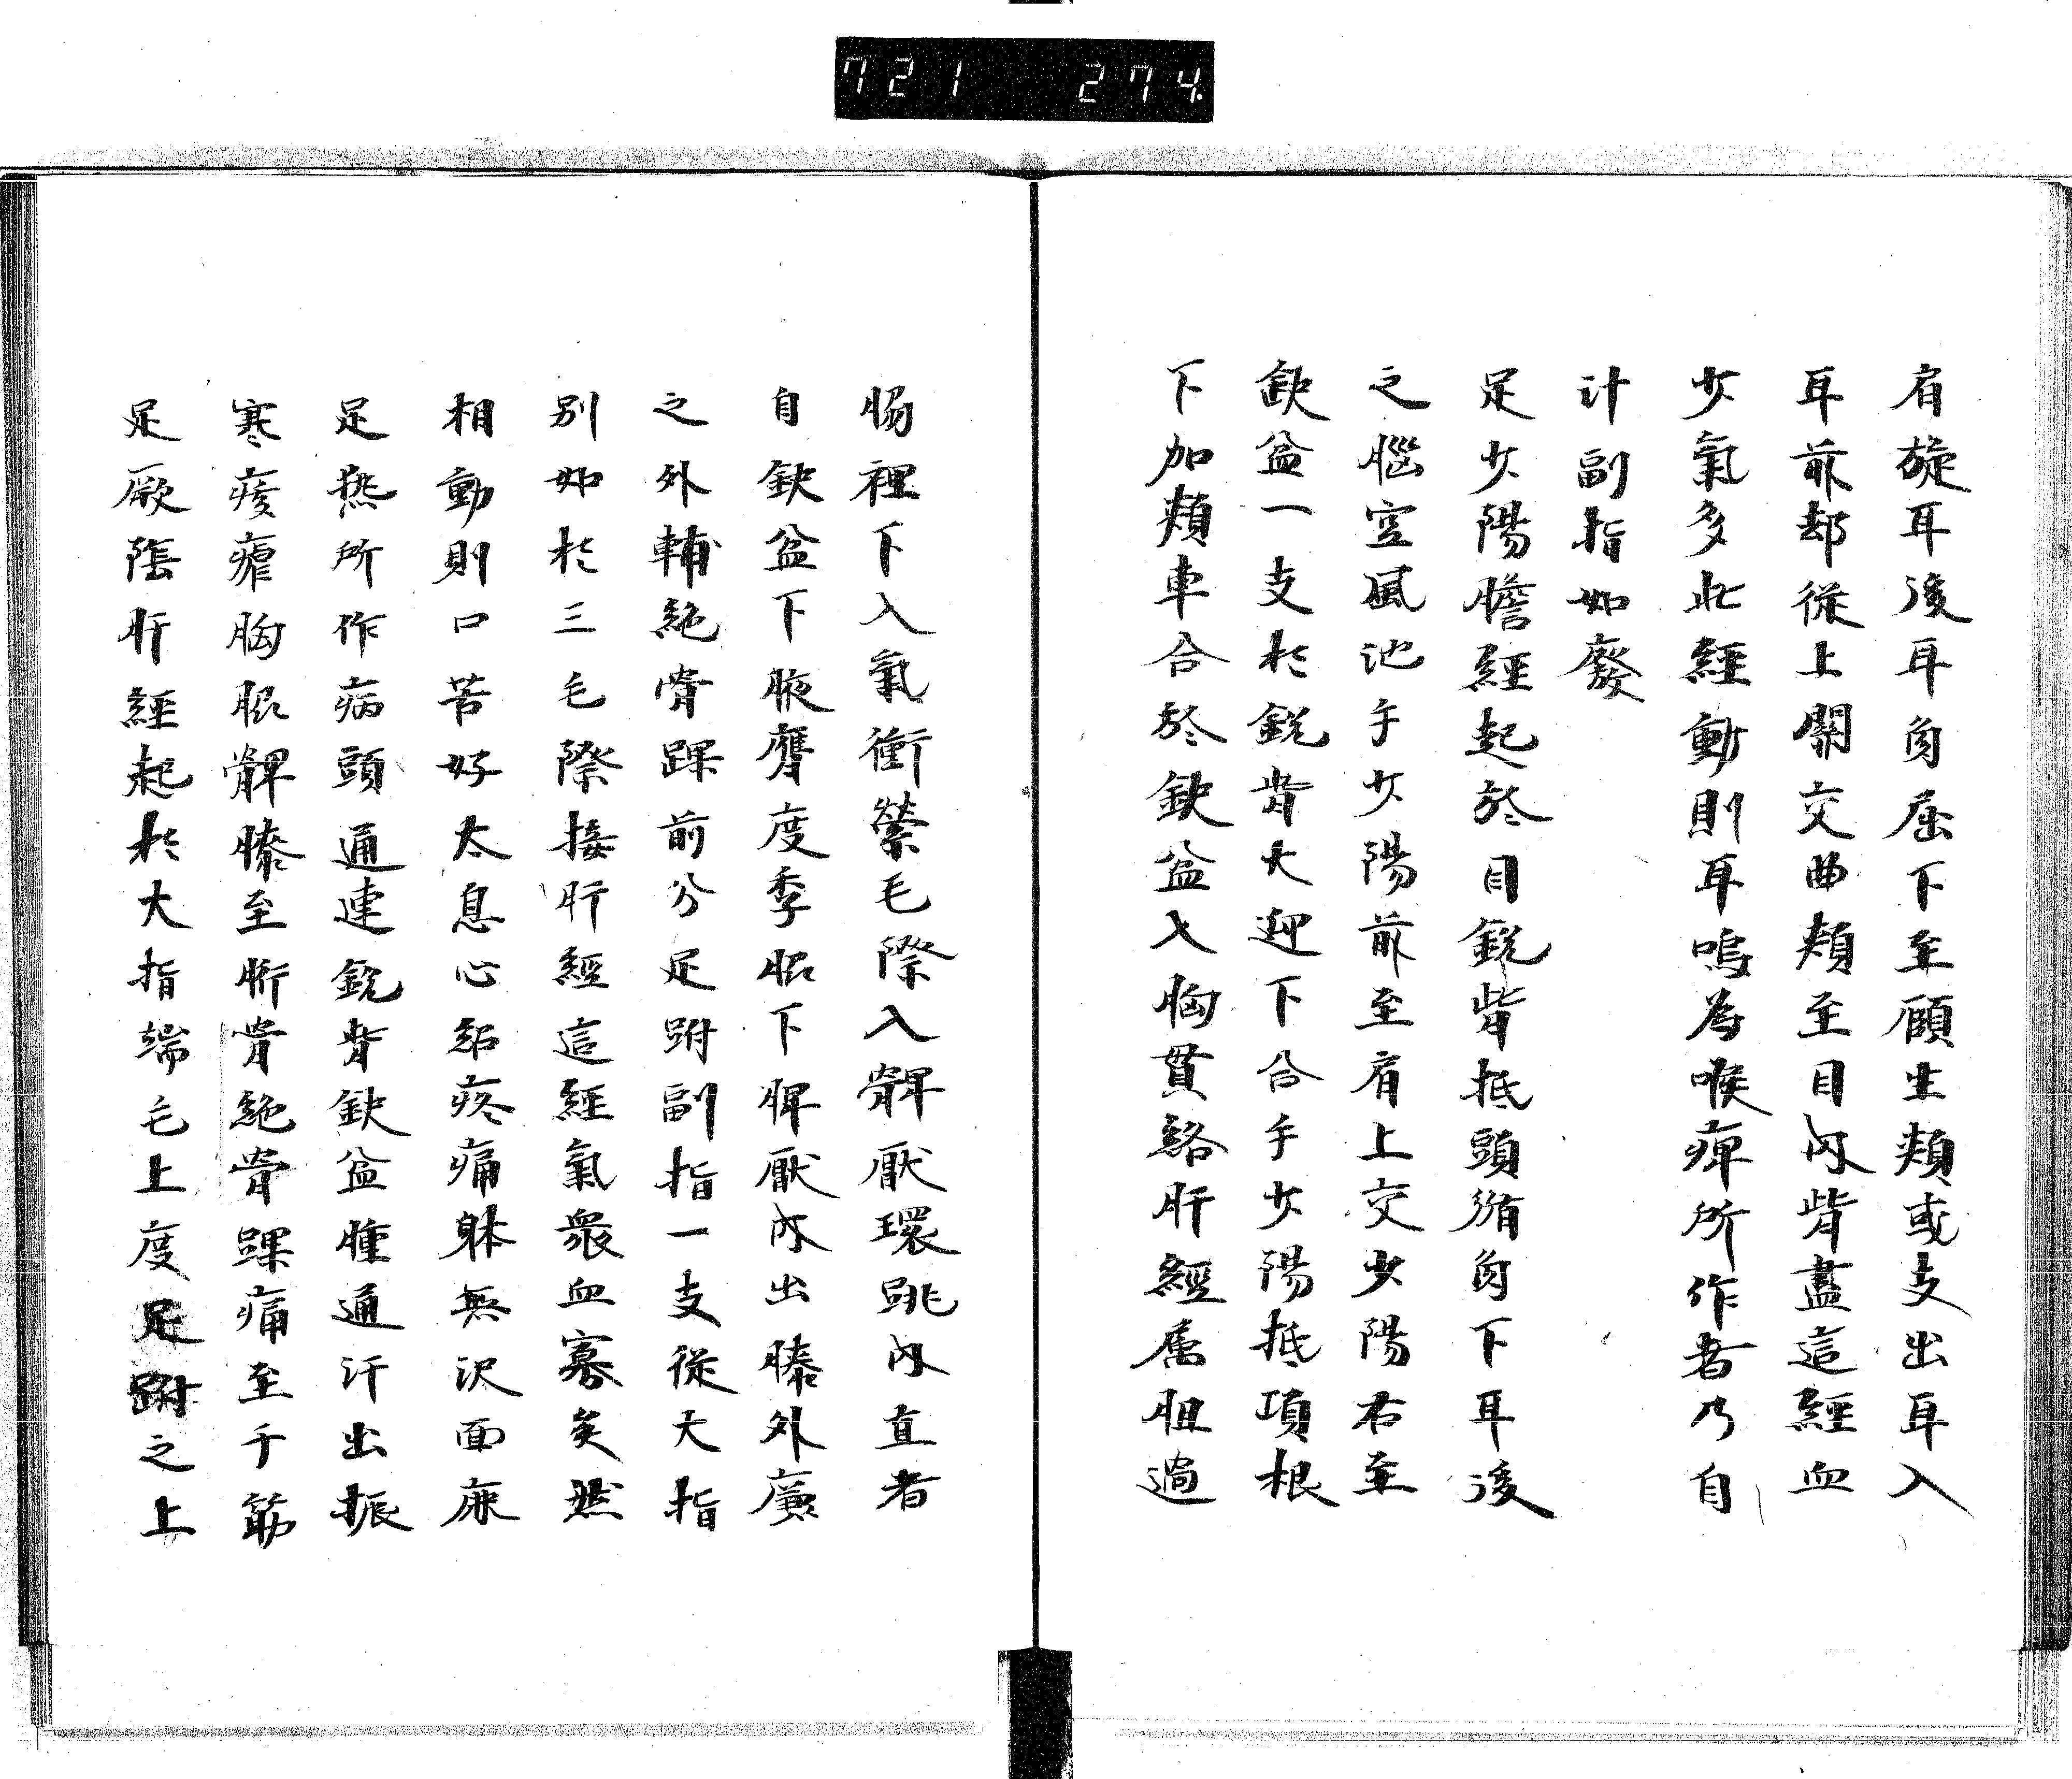 721 274
肩旋耳後耳角屈下至𩒐生頬或支出耳入
耳前却從上關交曲頬至目内眥盡這經血
少氣多此經動則耳鳴為喉痺所作者乃自
計副指如廢
足少陽膽經起於目銳眥抵頭循角下耳後
之腦空風池手少陽前至肩上交少陽右至
缺盆一支於銳眥大迎下合手少陽抵項根
下加頬車合於缺盆入胸貫絡肝經屬胆過
脇裡下入氣衝縈毛際入髀厭環跳内直者
自缺盆下腋膺度季脇下脾厭内出膝外廉
之外輔絶骨踝前分足跗副指一支從大指
別如於三毛際接肝經這經氣衆血寡矣然
相動則口苦好太息心絡疼痛躰無沢面廉
足熱所作病頭通連銳眥缺盆腫通汗出振
寒痎瘧胸脇髀膝至胻骨絶骨踝痛至于筋
足厥陰肝經起於大指端毛上度足跗之上